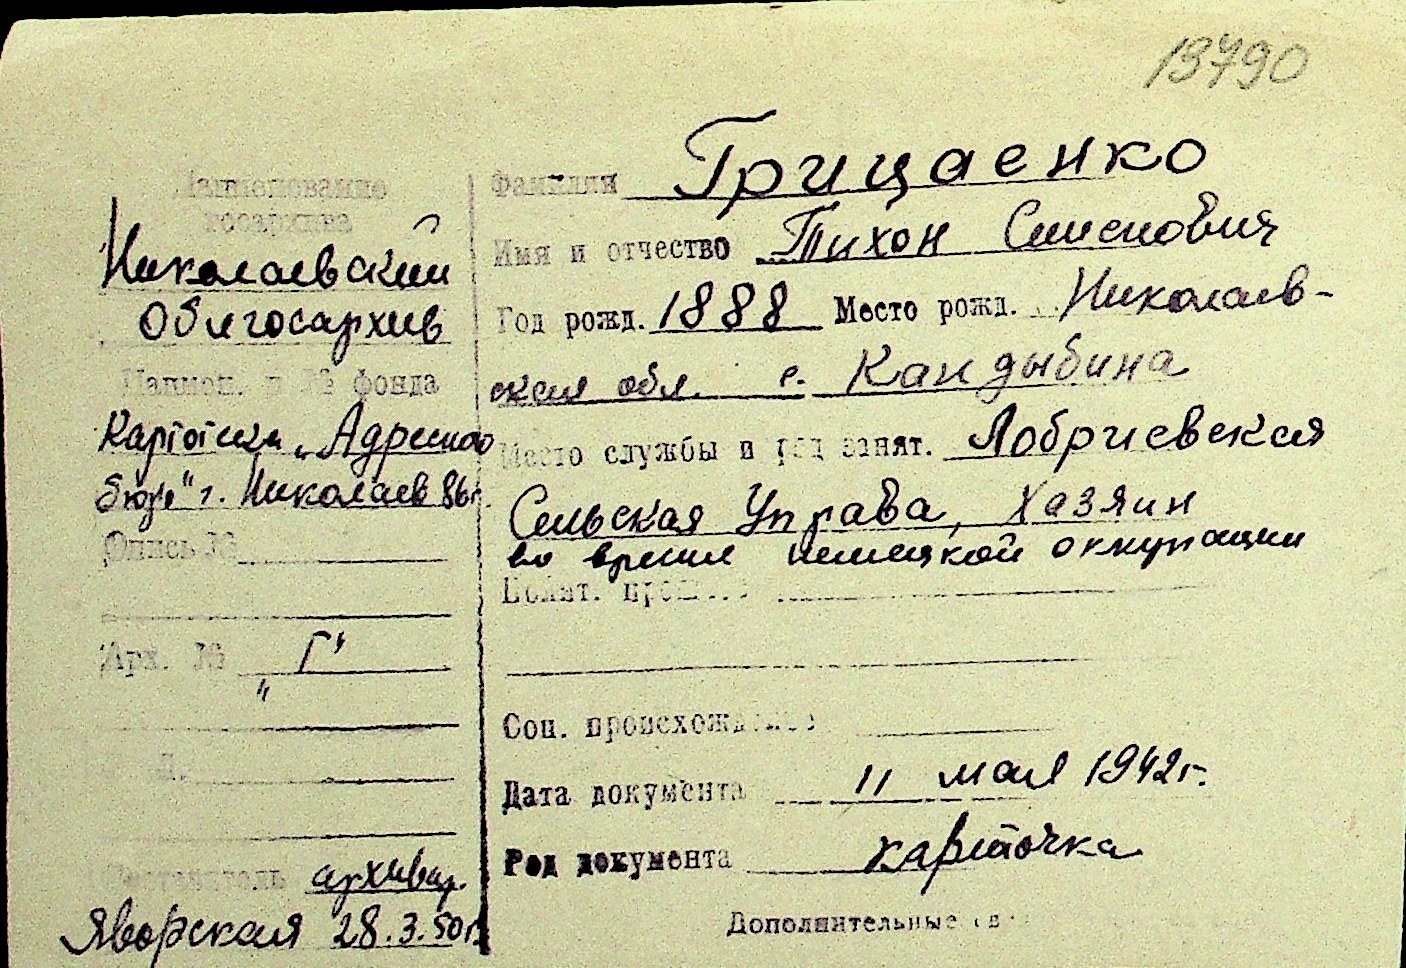 13790
Наименование
госархива
Николаевский
Облгосархив
Наимен. и № фонда
Картотека „Адресного
бюро" г. Николаев 86г.
Опись №
Арх. № „Г"
Л.
Составитель архивар.
Яворская 28.3.50г.
Фамилия Грицаенко
Имя и отчество Тихон Семенович
Год рожд. 1888 Место рожд. Николаев-
ская обл. с. Кандыбина
Место службы и род занят. Лобриевская
Сельская Управа, Хазяин
во время немецкой оккупации
Полит. прошлое
Соц. происхождение
Дата документа 11 мая 1942г.
Род документа карточка
Дополнительные